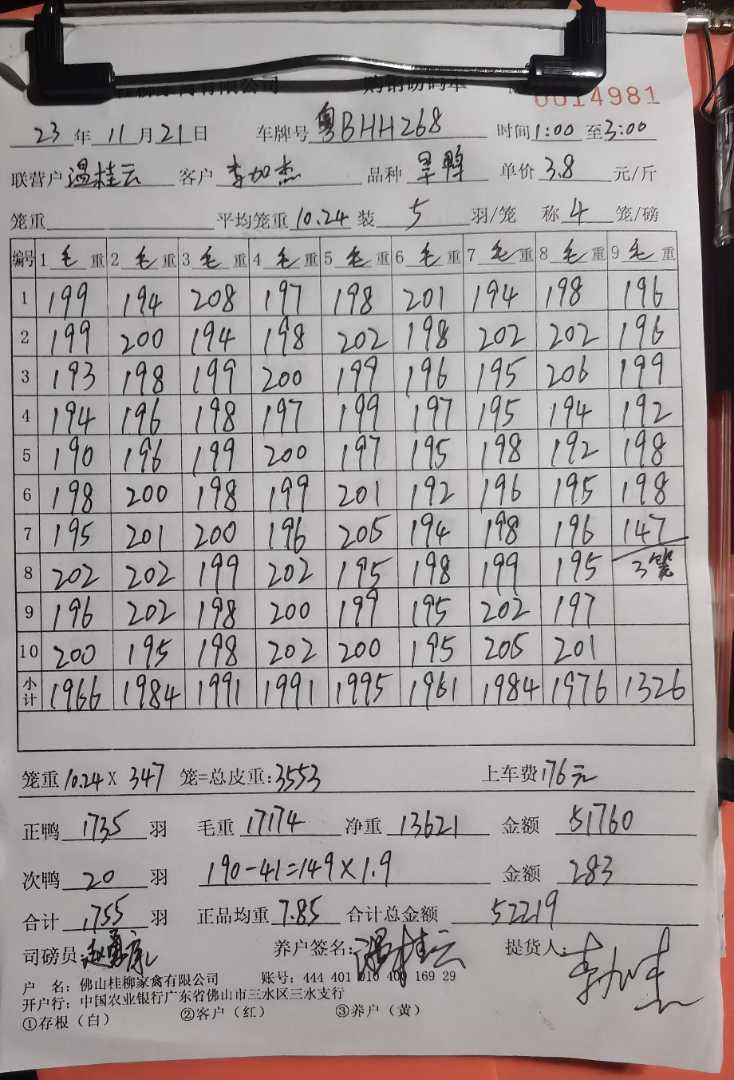 0014981
23 年 11 月 21 日 车牌号 粤BHH268 时间 1:00 至 3:00
联营户 温桂云 客户 李加杰 品种 旱鸭 单价 3.8 元/斤
笼重 平均笼重 10.24 装 5 羽/笼 称 4 笼/磅
编号 1 毛 重 2 毛 重 3 毛 重 4 毛 重 5 毛 重 6 毛 重 7 毛 重 8 毛 重 9 毛 重
1 199 194 208 197 198 201 194 198 196
2 199 200 194 198 202 198 202 202 196
3 193 198 199 200 199 196 195 206 199
4 194 196 198 197 199 197 195 194 192
5 190 196 199 200 197 195 198 192 198
6 198 200 198 199 201 192 196 195 198
7 195 201 200 196 205 194 198 196 147
8 202 202 199 202 195 198 199 195 3笼
9 196 202 198 200 199 195 202 197
10 200 195 198 202 200 195 205 201
小计 1966 1984 1991 1991 1995 1961 1984 1976 1326
笼重 10.24 X 347 笼=总皮重:3553 上车费 176元
正鸭 1735 羽 毛重 17174 净重 13621 金额 51760
次鸭 20 羽 190-41=149×1.9 金额 283
合计 1755 羽 正品均重 7.85 合计总金额 52219
司磅员: 养户签名: 温桂云 提货人: 李加杰
户 名: 佛山桂柳家禽有限公司 账号: 444 401 010 400 169 29
开户行: 中国农业银行广东省佛山市三水区三水支行
①存根（白） ②客户（红） ③养户（黄）